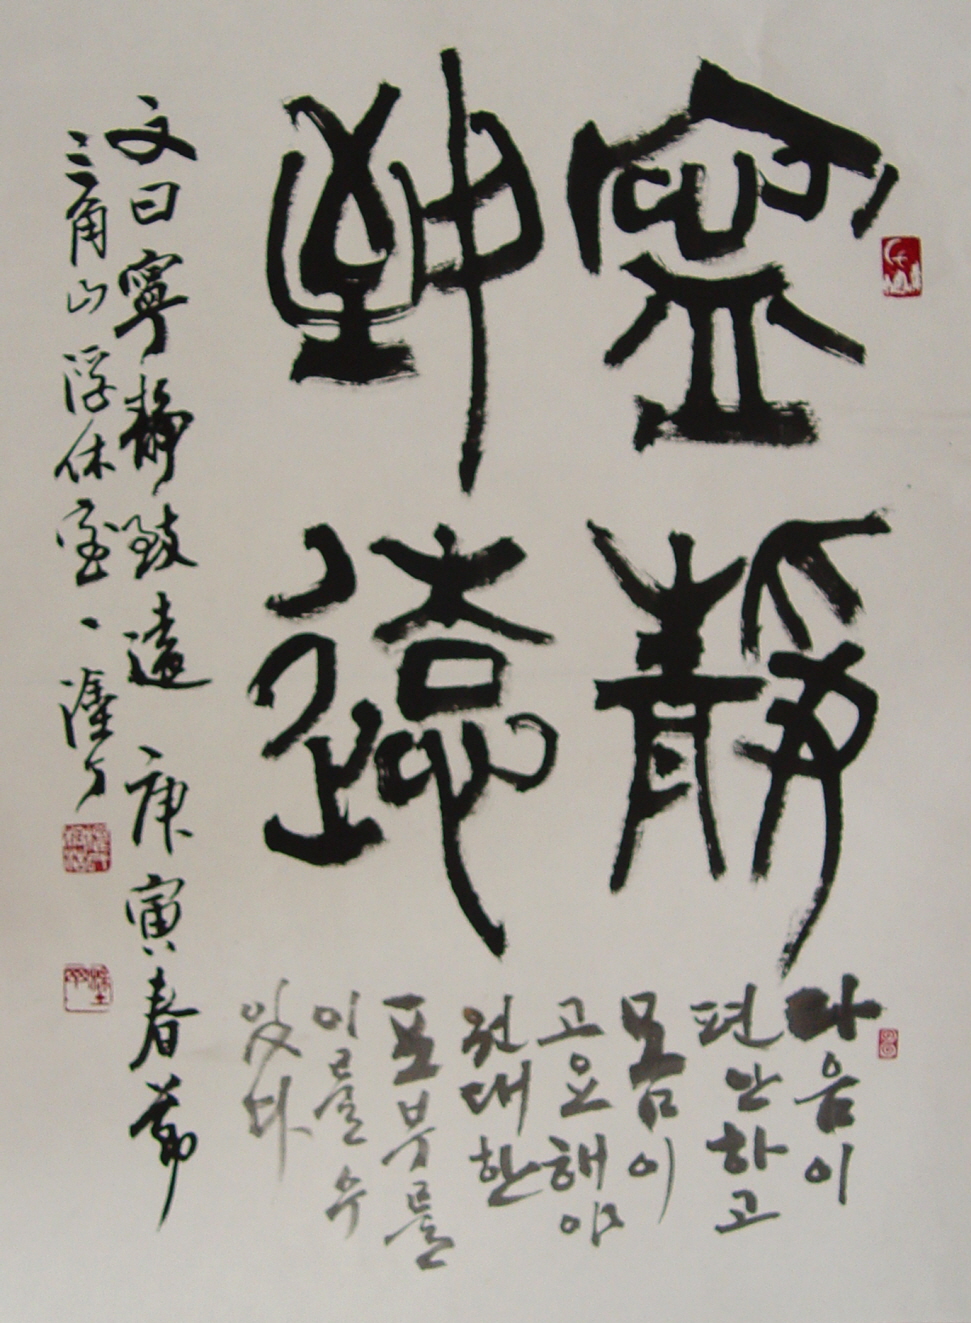 寧靜
致遠
마음이
편안하고
몸이
고요해야
원대한
포부를
이룰 수
있다
文曰寧靜致遠 庚寅春節
三角山浮休室